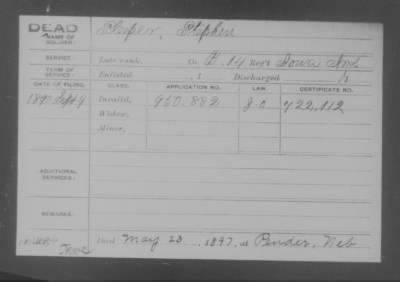 DEAD
NAME OF SOLDIER: Sleeper, Stephen
SERVICE: Late rank, Co. A. 14 Reg't Iowa Inf.
TERM OF SERVICE: Enlisted , 1 Discharged /1
DATE OF FILING. CLASS. APPLICATION NO. LAW. CERTIFICATE NO.
1890 Sept 9 Invalid, 950.882 J.O 722.112
Widow,
Minor,
ADDITIONAL SERVICES:
REMARKS:
Died May 23, 1897, at Pender, Neb